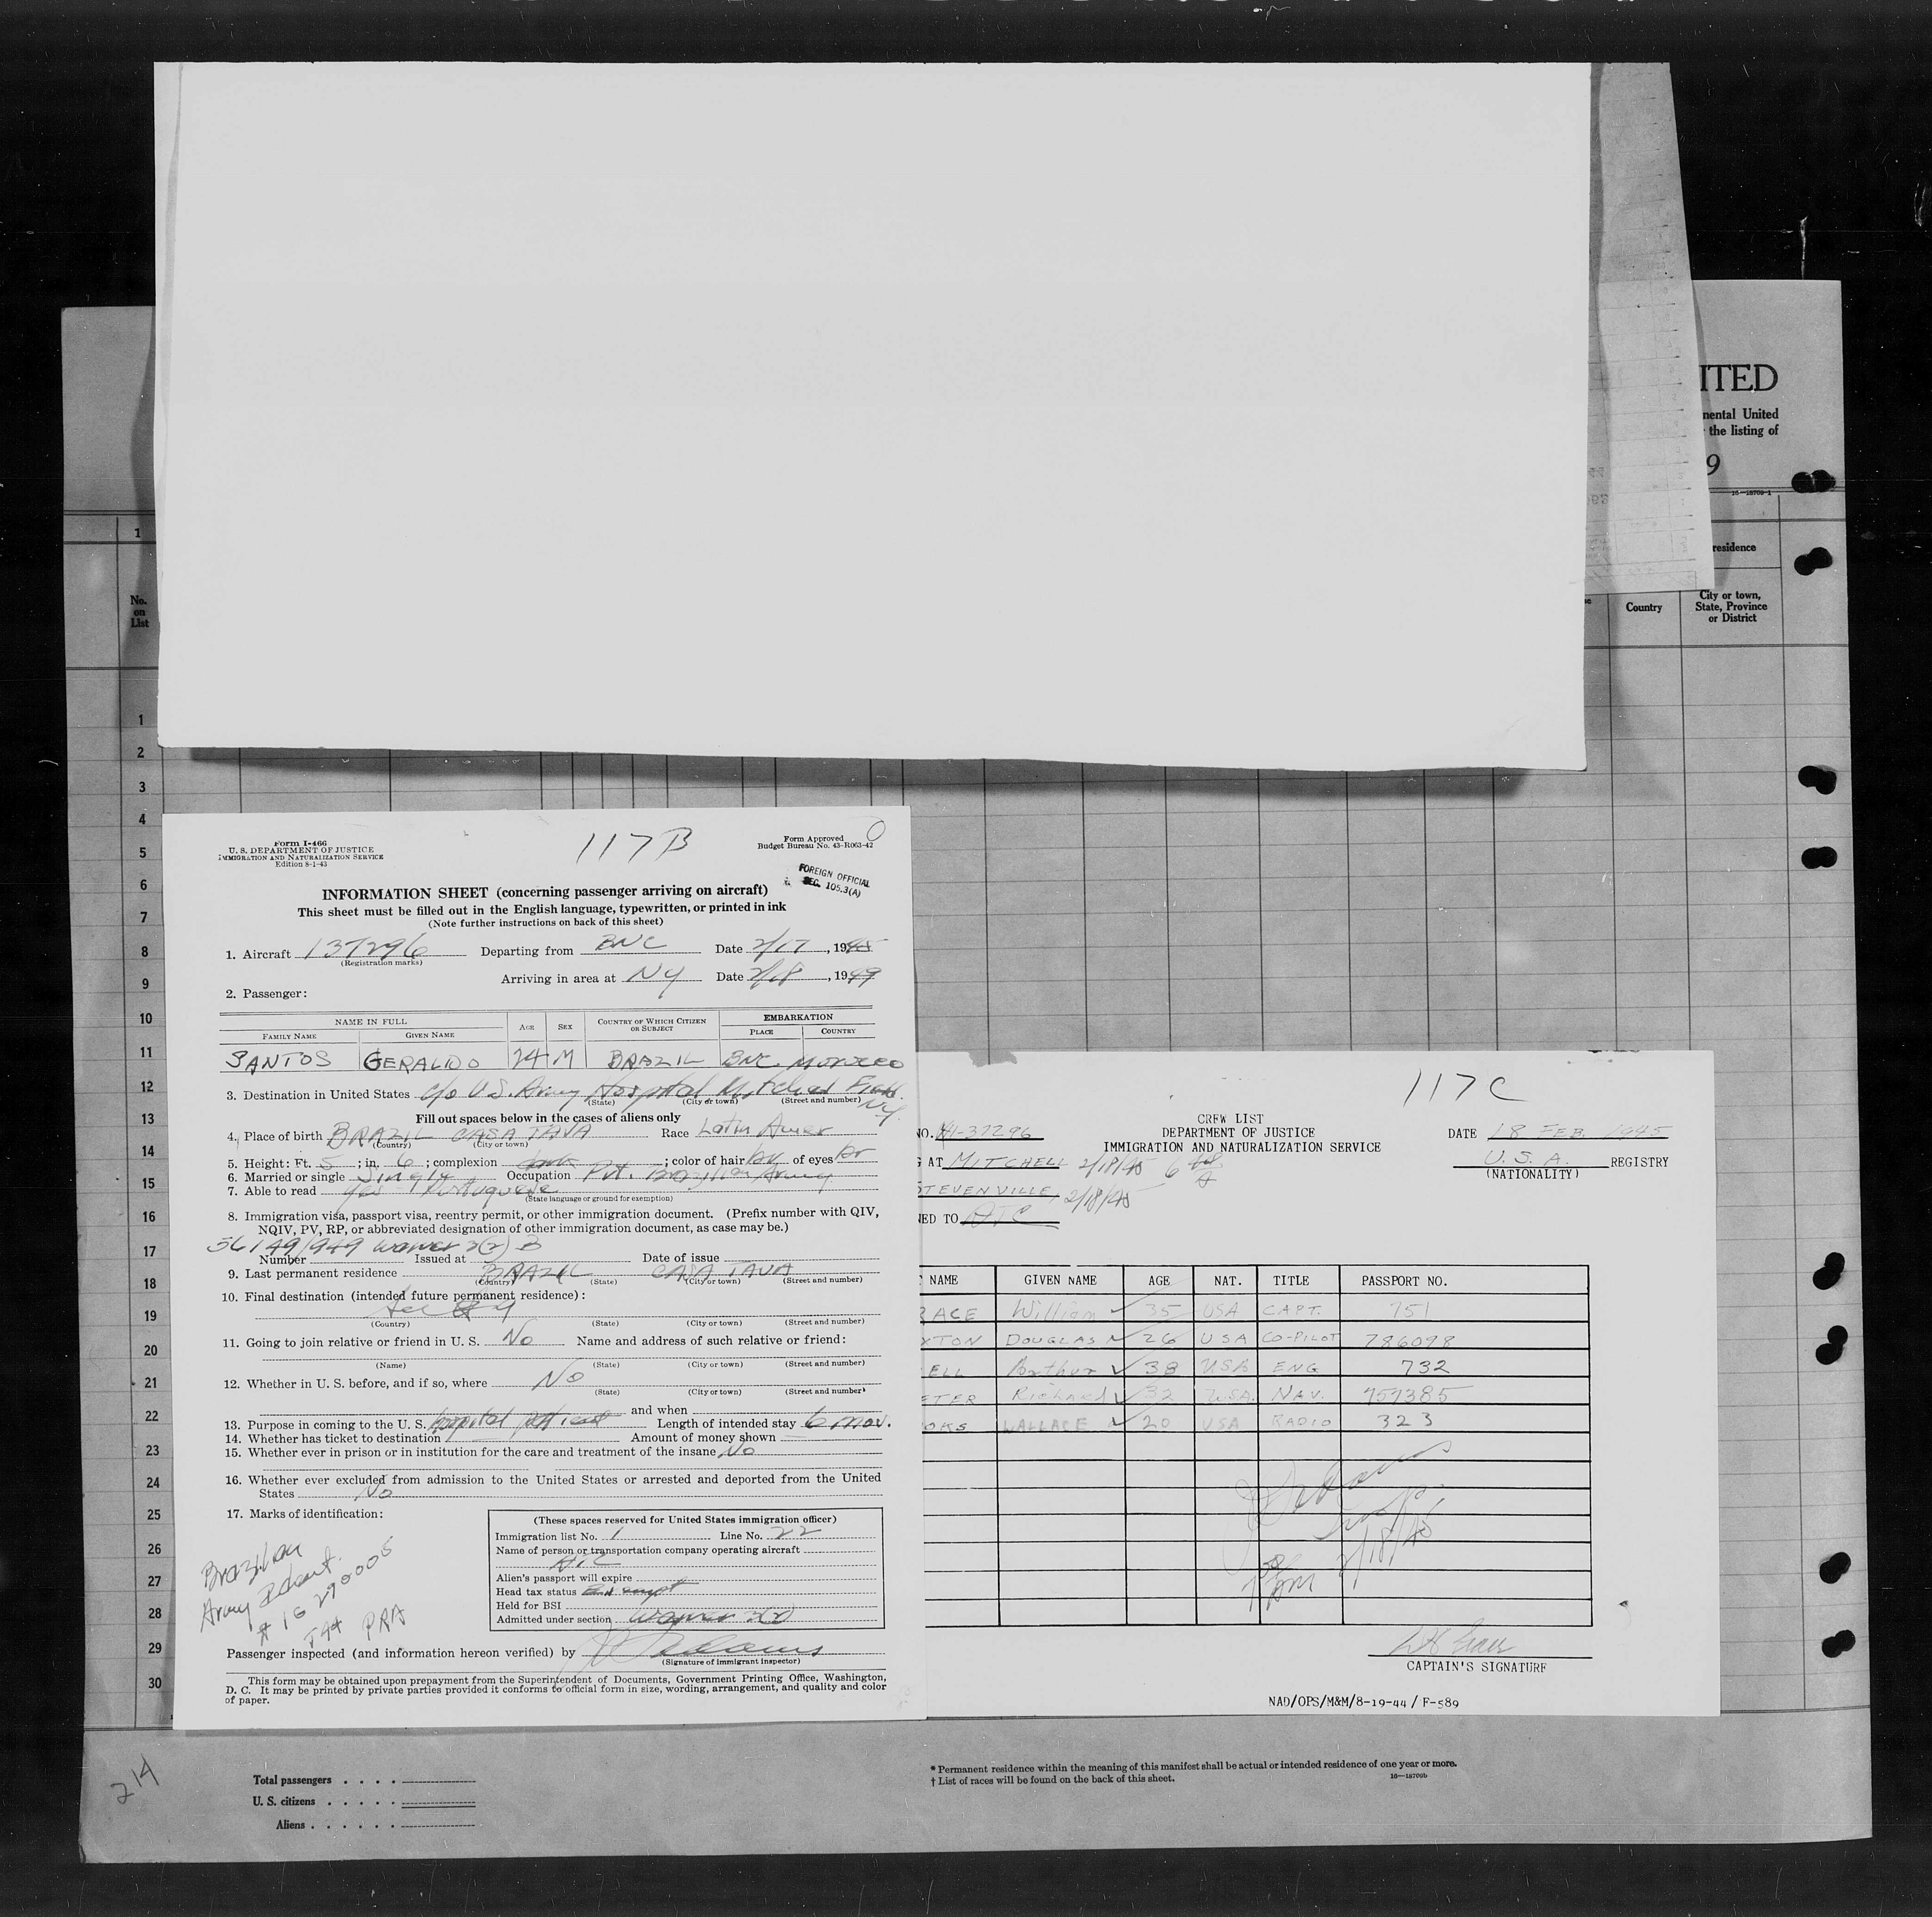 ITED
nental United
the listing of
9
16—18709-1
1
residence
No.
on
List
Country
City or town,
State, Province
or District
1
2
3
4
5
6
7
8
9
10
11
12
13
14
15
16
17
18
19
20
21
22
23
24
25
26
27
28
29
30
Form I-466
U. S. DEPARTMENT OF JUSTICE
IMMIGRATION AND NATURALIZATION SERVICE
Edition 8-1-43
117B
Form Approved
Budget Bureau No. 43-R063-42
FOREIGN OFFICIAL
SEC. 105.3(A)
INFORMATION SHEET (concerning passenger arriving on aircraft)
This sheet must be filled out in the English language, typewritten, or printed in ink
(Note further instructions on back of this sheet)
1. Aircraft 137296 Departing from BNC Date 2/17, 1945
(Registration marks)
Arriving in area at NY Date 2/18, 19
2. Passenger:
NAME IN FULL AGE SEX COUNTRY OF WHICH CITIZEN OR SUBJECT EMBARKATION
FAMILY NAME GIVEN NAME PLACE COUNTRY
SANTOS GERALDO 24 M BRAZIL BNC MOROCCO
3. Destination in United States c/o U.S. Army Hospital Mitchel Field NY
(State) (City or town) (Street and number)
Fill out spaces below in the cases of aliens only
4. Place of birth BRAZIL CASA TAVA Race Latin Amer
(Country) (City or town)
5. Height: Ft. 5; in. 6; complexion dark; color of hair of eyes Br
6. Married or single Single Occupation Pvt. Brazilian Army
7. Able to read yes - Portuguese
(State language or ground for exemption)
8. Immigration visa, passport visa, reentry permit, or other immigration document. (Prefix number with QIV,
NQIV, PV, RP, or abbreviated designation of other immigration document, as case may be.)
56149/949 waiver 3(2) B
Number Issued at Date of issue
9. Last permanent residence BRAZIL CASA TAVA
(Country) (State) (City or town) (Street and number)
10. Final destination (intended future permanent residence):
(Country) (State) (City or town) (Street and number)
11. Going to join relative or friend in U. S. No Name and address of such relative or friend:
(Name) (State) (City or town) (Street and number)
12. Whether in U. S. before, and if so, where No
(State) (City or town) (Street and number)
and when
13. Purpose in coming to the U. S. hospital patient Length of intended stay 6 mos.
14. Whether has ticket to destination Amount of money shown
15. Whether ever in prison or in institution for the care and treatment of the insane No
16. Whether ever excluded from admission to the United States or arrested and deported from the United
States No
17. Marks of identification:
Brazilian
Army Ident.
# 1G 290005
PRA
(These spaces reserved for United States immigration officer)
Immigration list No. 1 Line No. 22
Name of person or transportation company operating aircraft
ATC
Alien's passport will expire
Head tax status Exempt
Held for BSI
Admitted under section Waiver 3(2)
Passenger inspected (and information hereon verified) by
(Signature of immigrant inspector)
This form may be obtained upon prepayment from the Superintendent of Documents, Government Printing Office, Washington,
D. C. It may be printed by private parties provided it conforms to official form in size, wording, arrangement, and quality and color
of paper.
117C
CREW LIST
DEPARTMENT OF JUSTICE
IMMIGRATION AND NATURALIZATION SERVICE
NO. 41-37296
DATE 18 FEB. 1945
G AT MITCHELL 2/18/45
U.S.A. REGISTRY
(NATIONALITY)
STEVENVILLE, 2/18/45
NED TO ATC
NAME GIVEN NAME AGE NAT. TITLE PASSPORT NO.
RACE William 35 USA CAPT. 751
XTON DOUGLAS 26 USA CO-PILOT 786098
ELL Arthur 38 USA ENG 732
ETER Richard 32 USA NAV. 757385
OKS WALLACE 20 USA RADIO 323
2/18/45
CAPTAIN'S SIGNATURE
NAD/OPS/M&M/8-19-44 / F-589
214
Total passengers
U. S. citizens
Aliens
* Permanent residence within the meaning of this manifest shall be actual or intended residence of one year or more.
† List of races will be found on the back of this sheet.
16—18709b